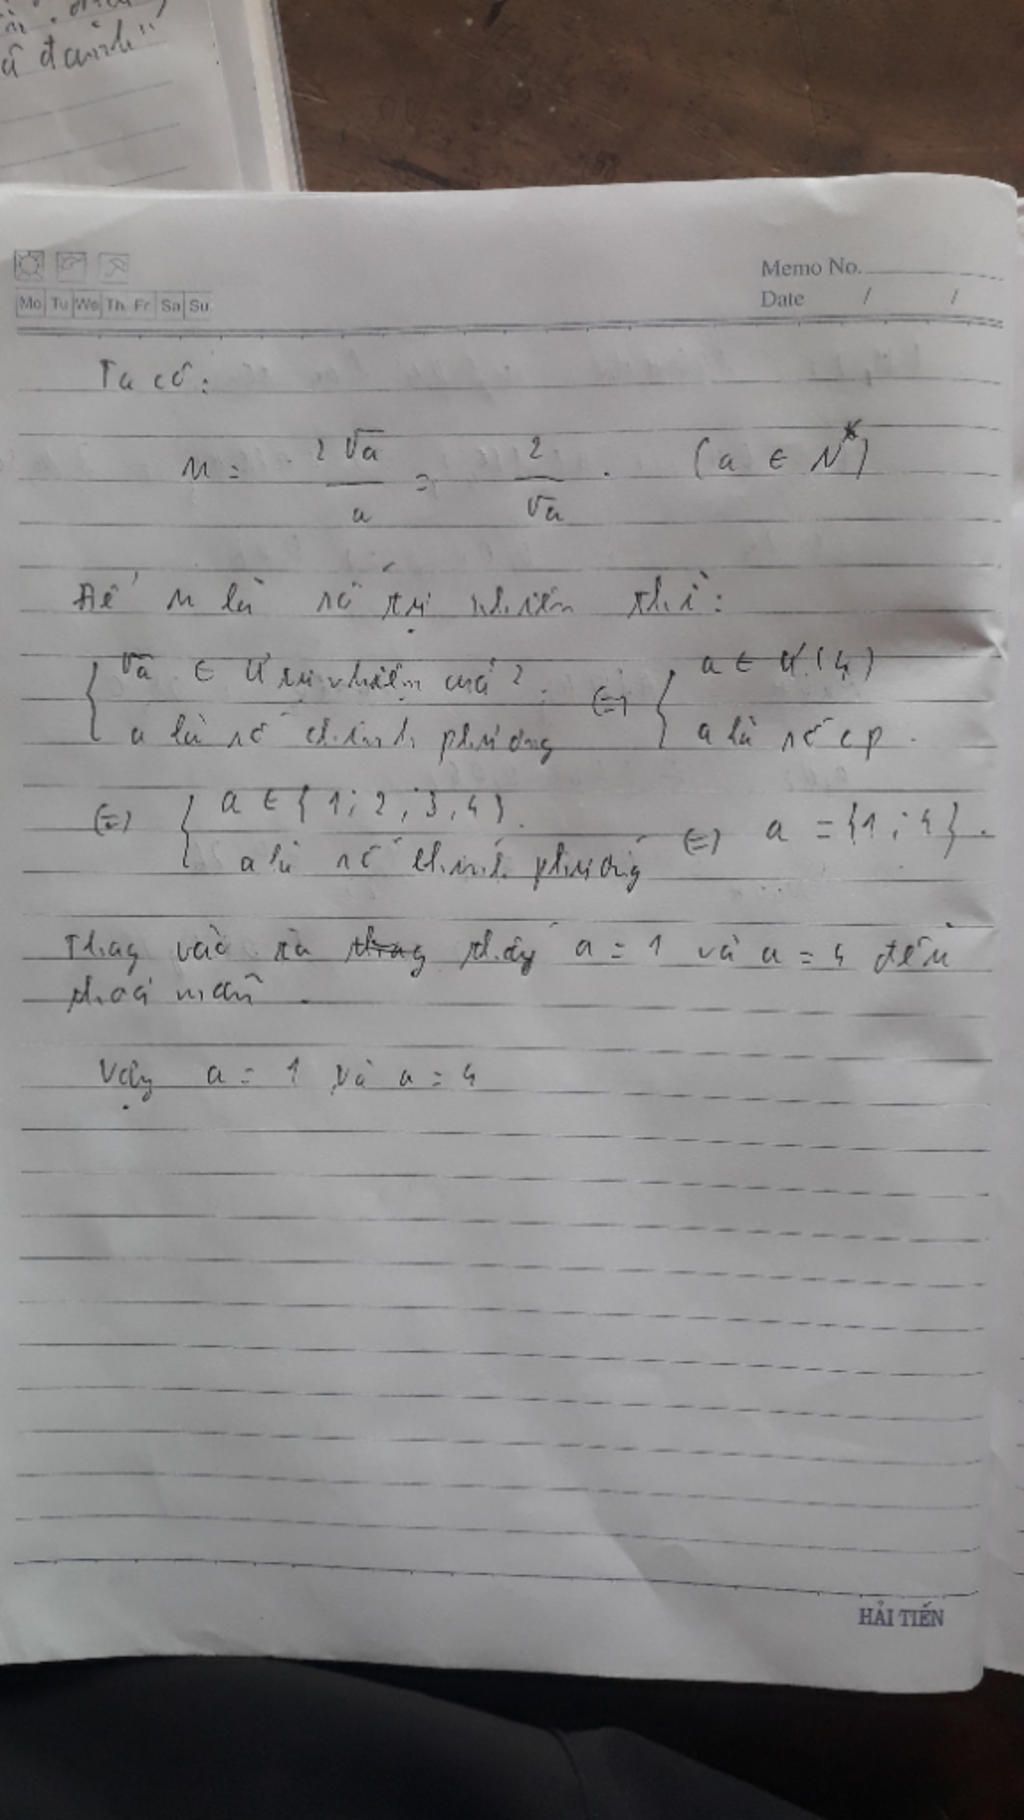 đánh"
Memo No.
Mo Tu We Th Fr Sa Su
Date / /
Ta có:
M = 2√a / a = 2 / √a . (a ∈ N*)
Để M là số tự nhiên thì:
{ √a ∈ Ư tự nhiên của 2 . ⇔ { a ∈ Ư(4)
a là số chính phương a là số cp .
⇔ { a ∈ { 1 ; 2 ; 3 , 4 } .
a là số chính phương ⇔ a = {1 ; 4} .
Thay vào ta thay thấy a = 1 và a = 4 đều
thoả mãn .
Vậy a = 1 và a = 4
HẢI TIẾN